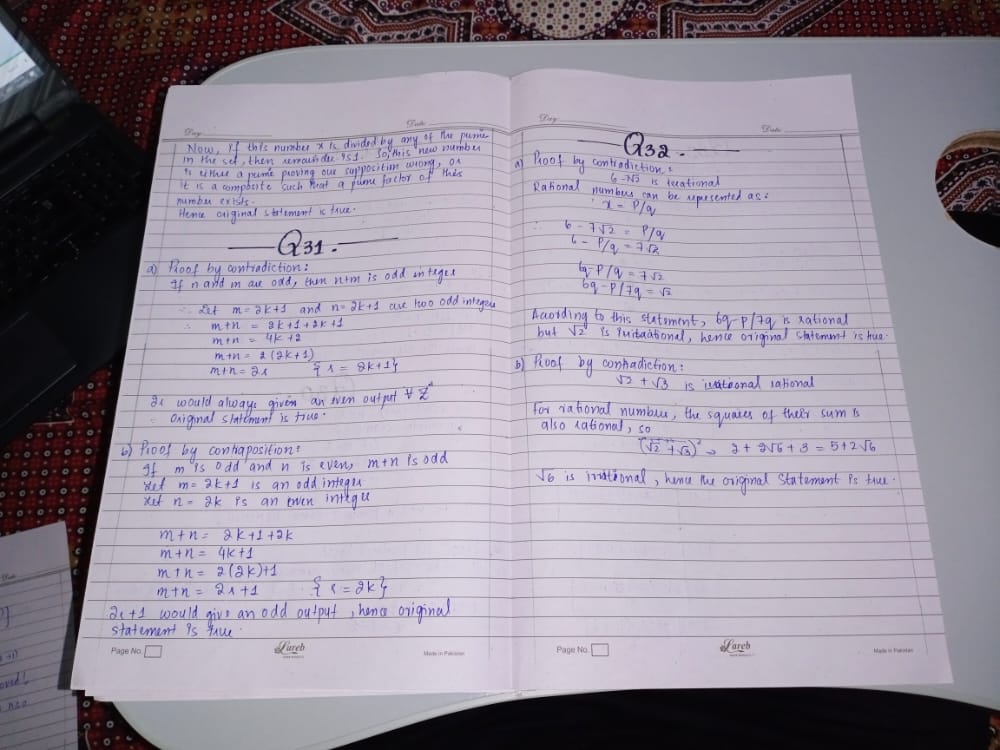 Day
Date
Now, if this number x is divided by any of the prime
in the set, then remainder is 1. So, this new number
is either a prime proving our supposition wrong, or
it is a composite such that a prime factor of this
number exists.
Hence original statement is true.
Q31.
a) Proof by contradiction:
If n and m are odd, then n+m is odd integer
∴ Let m = 2k+1 and n = 2k+1 are two odd integers
∴ m+n = 2k+1+2k+1
m+n = 4k+2
m+n = 2(2k+1)
m+n = 2r {r = 2k+1}
2r would always given an even output ∀ Z
∴ Original statement is true.
b) Proof by contraposition:
If m is odd and n is even, m+n is odd
Let m = 2k+1 is an odd integer
Let n = 2k is an even integer
m+n = 2k+1+2k
m+n = 4k+1
m+n = 2(2k)+1
m+n = 2r+1 {r = 2k}
2r+1 would give an odd output, hence original
statement is true.
Page No.
Lareb
Made in Pakistan
Day
Date
Q32.
a) Proof by contradiction:
6-7√2 is irrational
Rational numbers can be represented as:
x = P/q
∴ 6-7√2 = P/q
6-P/q = 7√2
6q-P/q = 7√2
6q-P/7q = √2
According to this statement, 6q-P/7q is rational
but √2 is irrational, hence original statement is true.
b) Proof by contradiction:
√2 + √3 is rational
For rational number, the squares of their sum is
also rational, so
(√2 + √3)² → 2+2√6+3 = 5+2√6
√6 is irrational, hence the original statement is true.
Page No.
Lareb
Made in Pakistan
Date